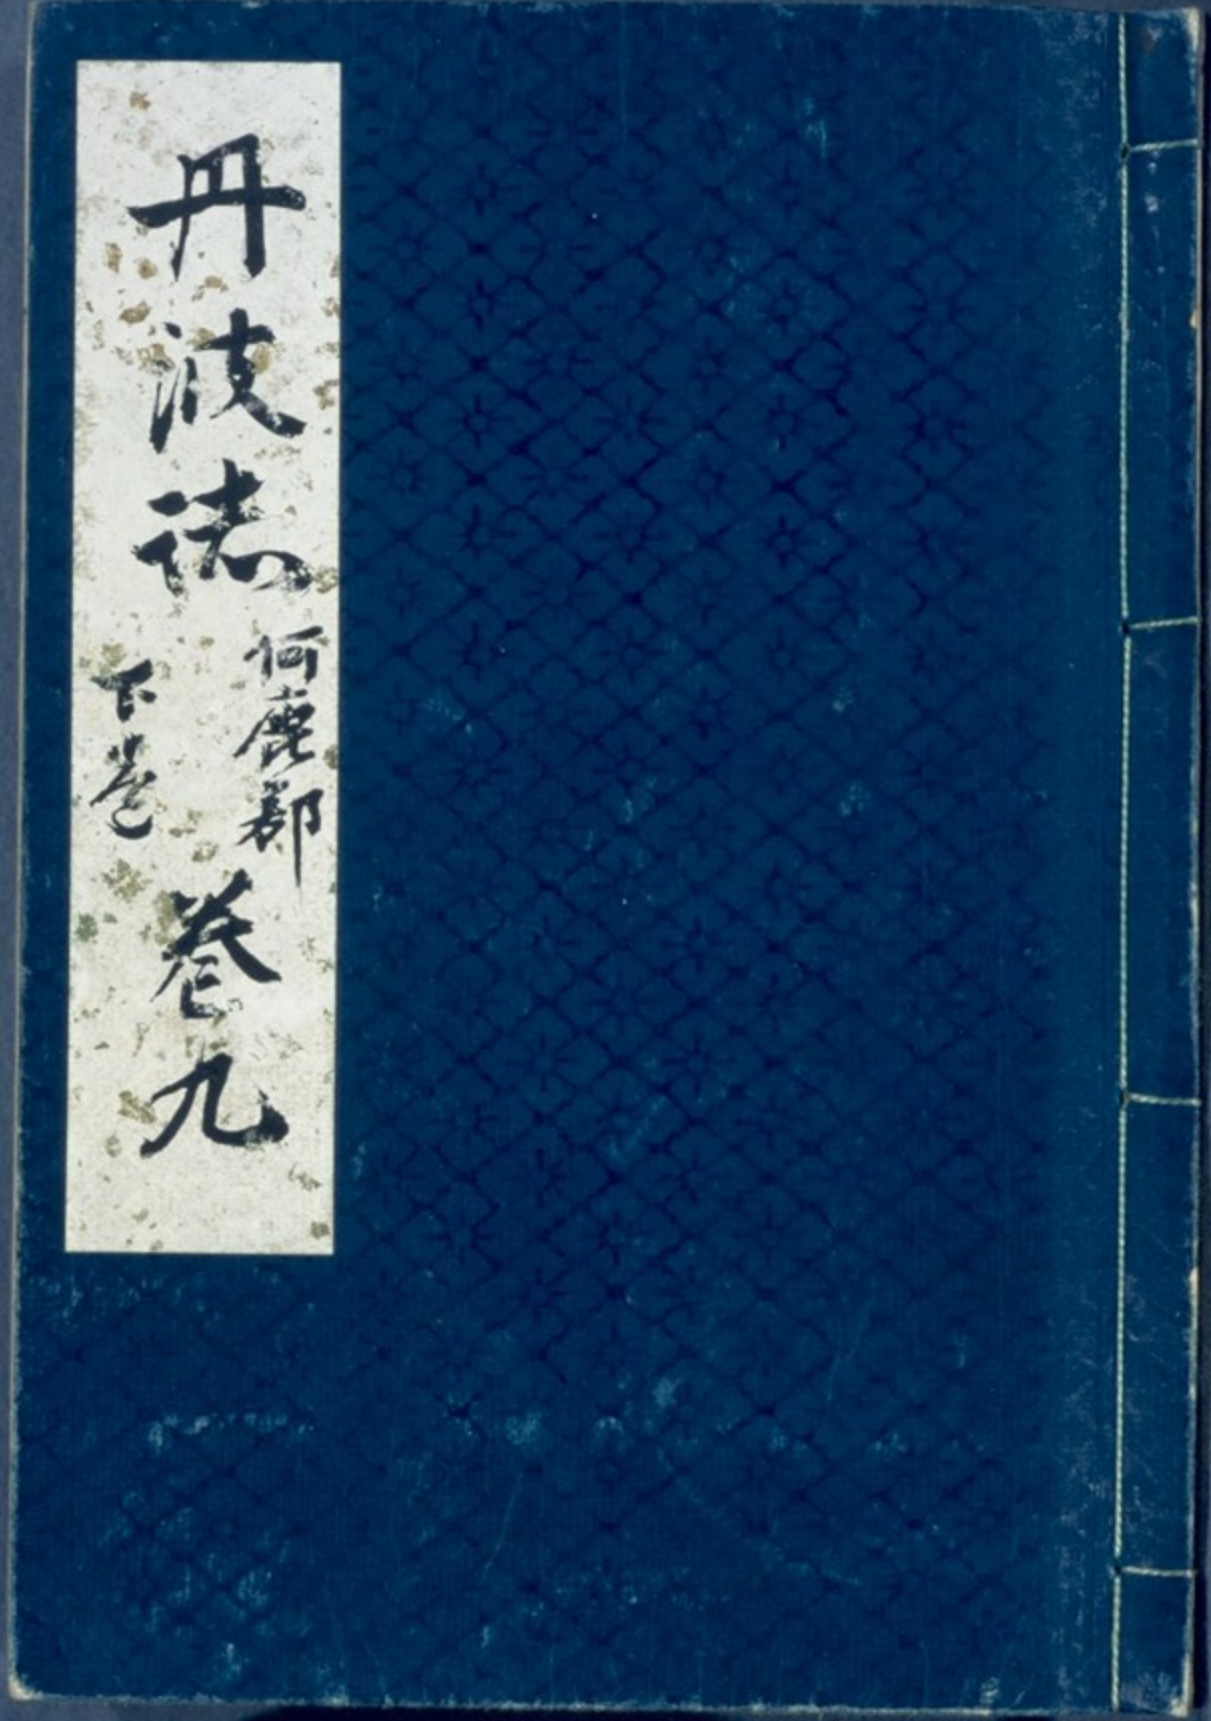 丹波誌
何鹿郡
下巻
巻九